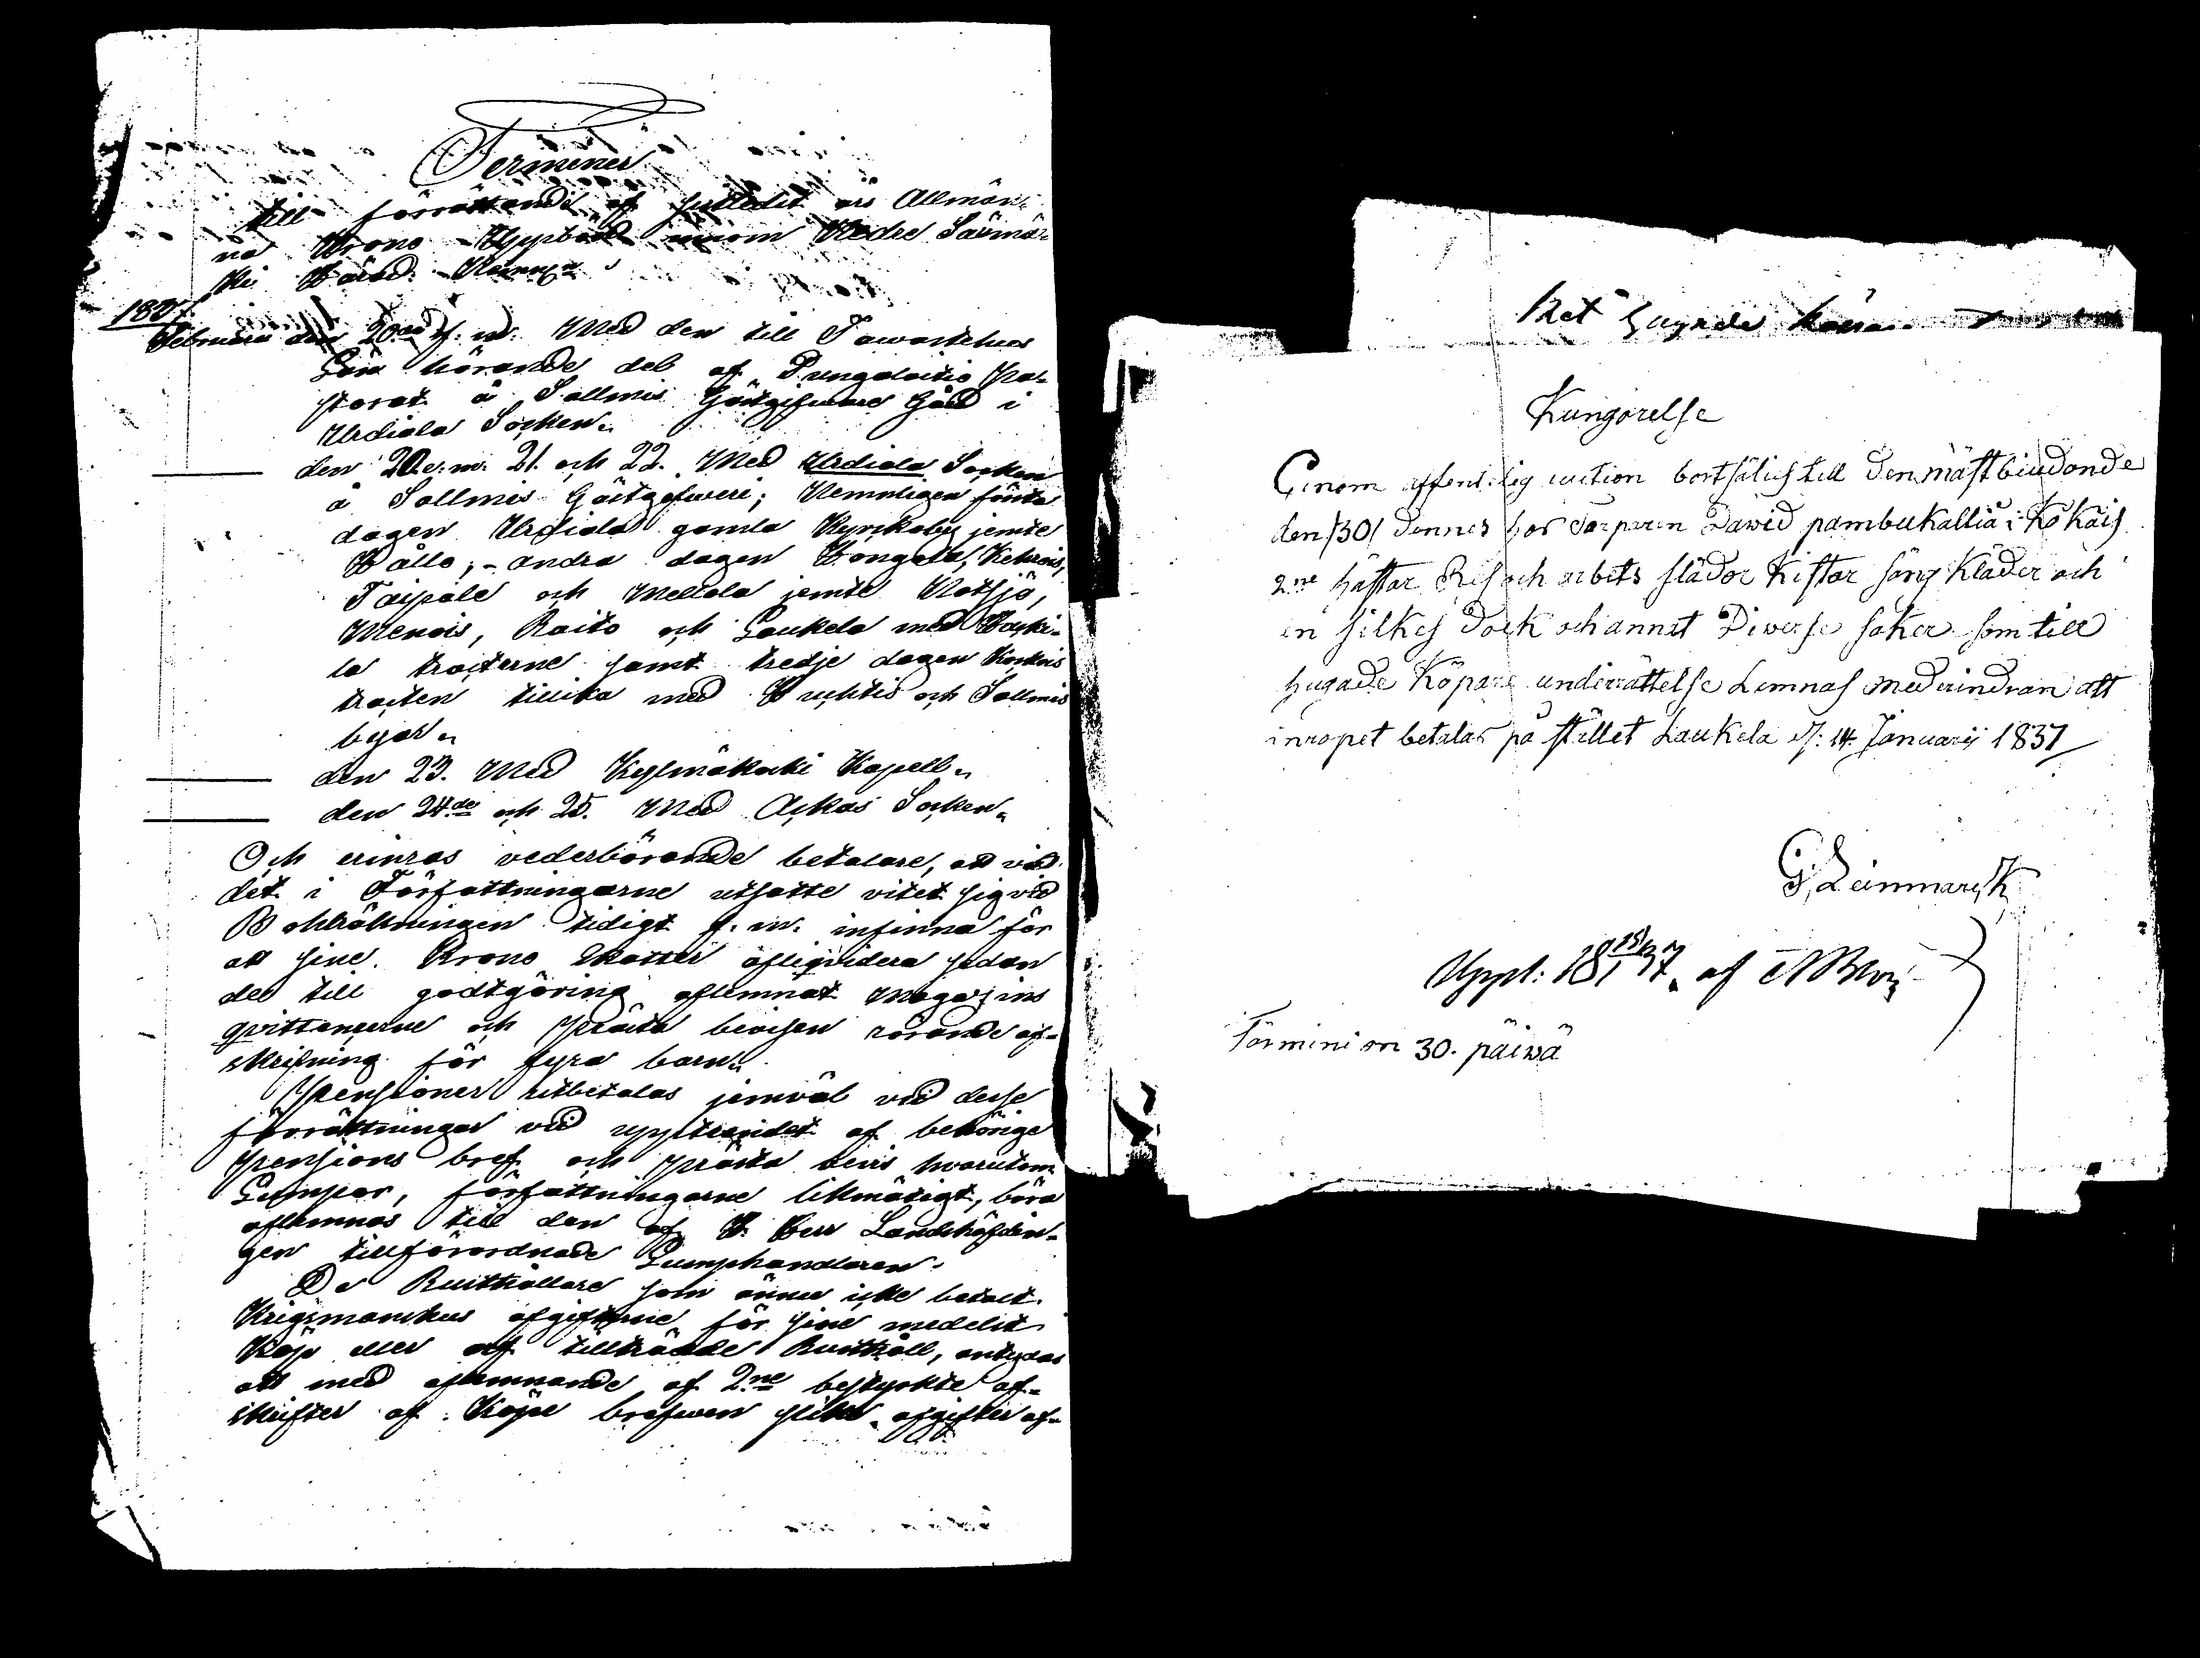 Terminer
till förrättande af sistledit års Allmän-
na Krono Uppbörd inom Nedre Säxmä-
ki Härad. Nemn:n
1837.
Februarii den 20de f. m. Med den till Tawastehus
Län hörande del af Pungalaitio Pa-
storat å Sallmis Gästgifware Gård i
Urdiala Socken.
den 20 e. m. 21. och 22. Med Urdiala Socken
å Sallmis Gästgifweri; Nemnligen första
dagen Urdiala gamla Kyrckoby jemte
Hållo; - andra dagen Hongola, Kehrois,
Taipale och Mellola jemte Notsjö,
Menois, Raito och Laukela med Hacki-
la tracterne samt tredje dagen Koskois
tracten tillika med Huhtis och Sallmis
byar.
den 23. Med Kylmäkoski Kapell.
den 24de och 25. Med Ackas Socken.
Och erinras vederbörande betalare, att vid
det i Författningarne utsatte vitet sig vid
Bokhållningen tidigt f. m. infinna för
att sine Krono Skatter afliqvidera sedan
de till godtgöring aflemnat Magazins
qvittancerne och Prästa bevisen rörande af-
skrifning för fyra barn.
Pensioner utbetalas jemväl vid desse
förrättningar vid uppteendet af behörige
Pensions bref och Prästa bevis hvarutom
Lumpor, författningarne likmätigt, böra
aflemnas till den af H. Herr Landshöfdin-
gen tillförordnade Lumphandlaren.
De Rusthållare som ännu icke betalt
Krigsmanshus afgifterne för sine medelst
Köp eller arf tillträdde Rusthåll, antydas
att med aflemnande af 2ne bestyrkte af-
skrifter af Köpe brefwen slika afgifter af-
Kungörelse
Genom offentlig auction bortsäljes till den mästbiudande
den /30/ dennes hos Torparen Dawid pambukallia i Kokais
2ne hästar Res och arbets slädor Kistor säng Kläder och
en silkes Dock och annat Diverse saker som till
hugade Köpare underrättelse Lemnas med erindran att
inropet betalas på stället Laukela d: 14 Januarij 1837
G, Leinmarck
Uppl: 18 15/1 37. af
Törmini on 30. päiwä